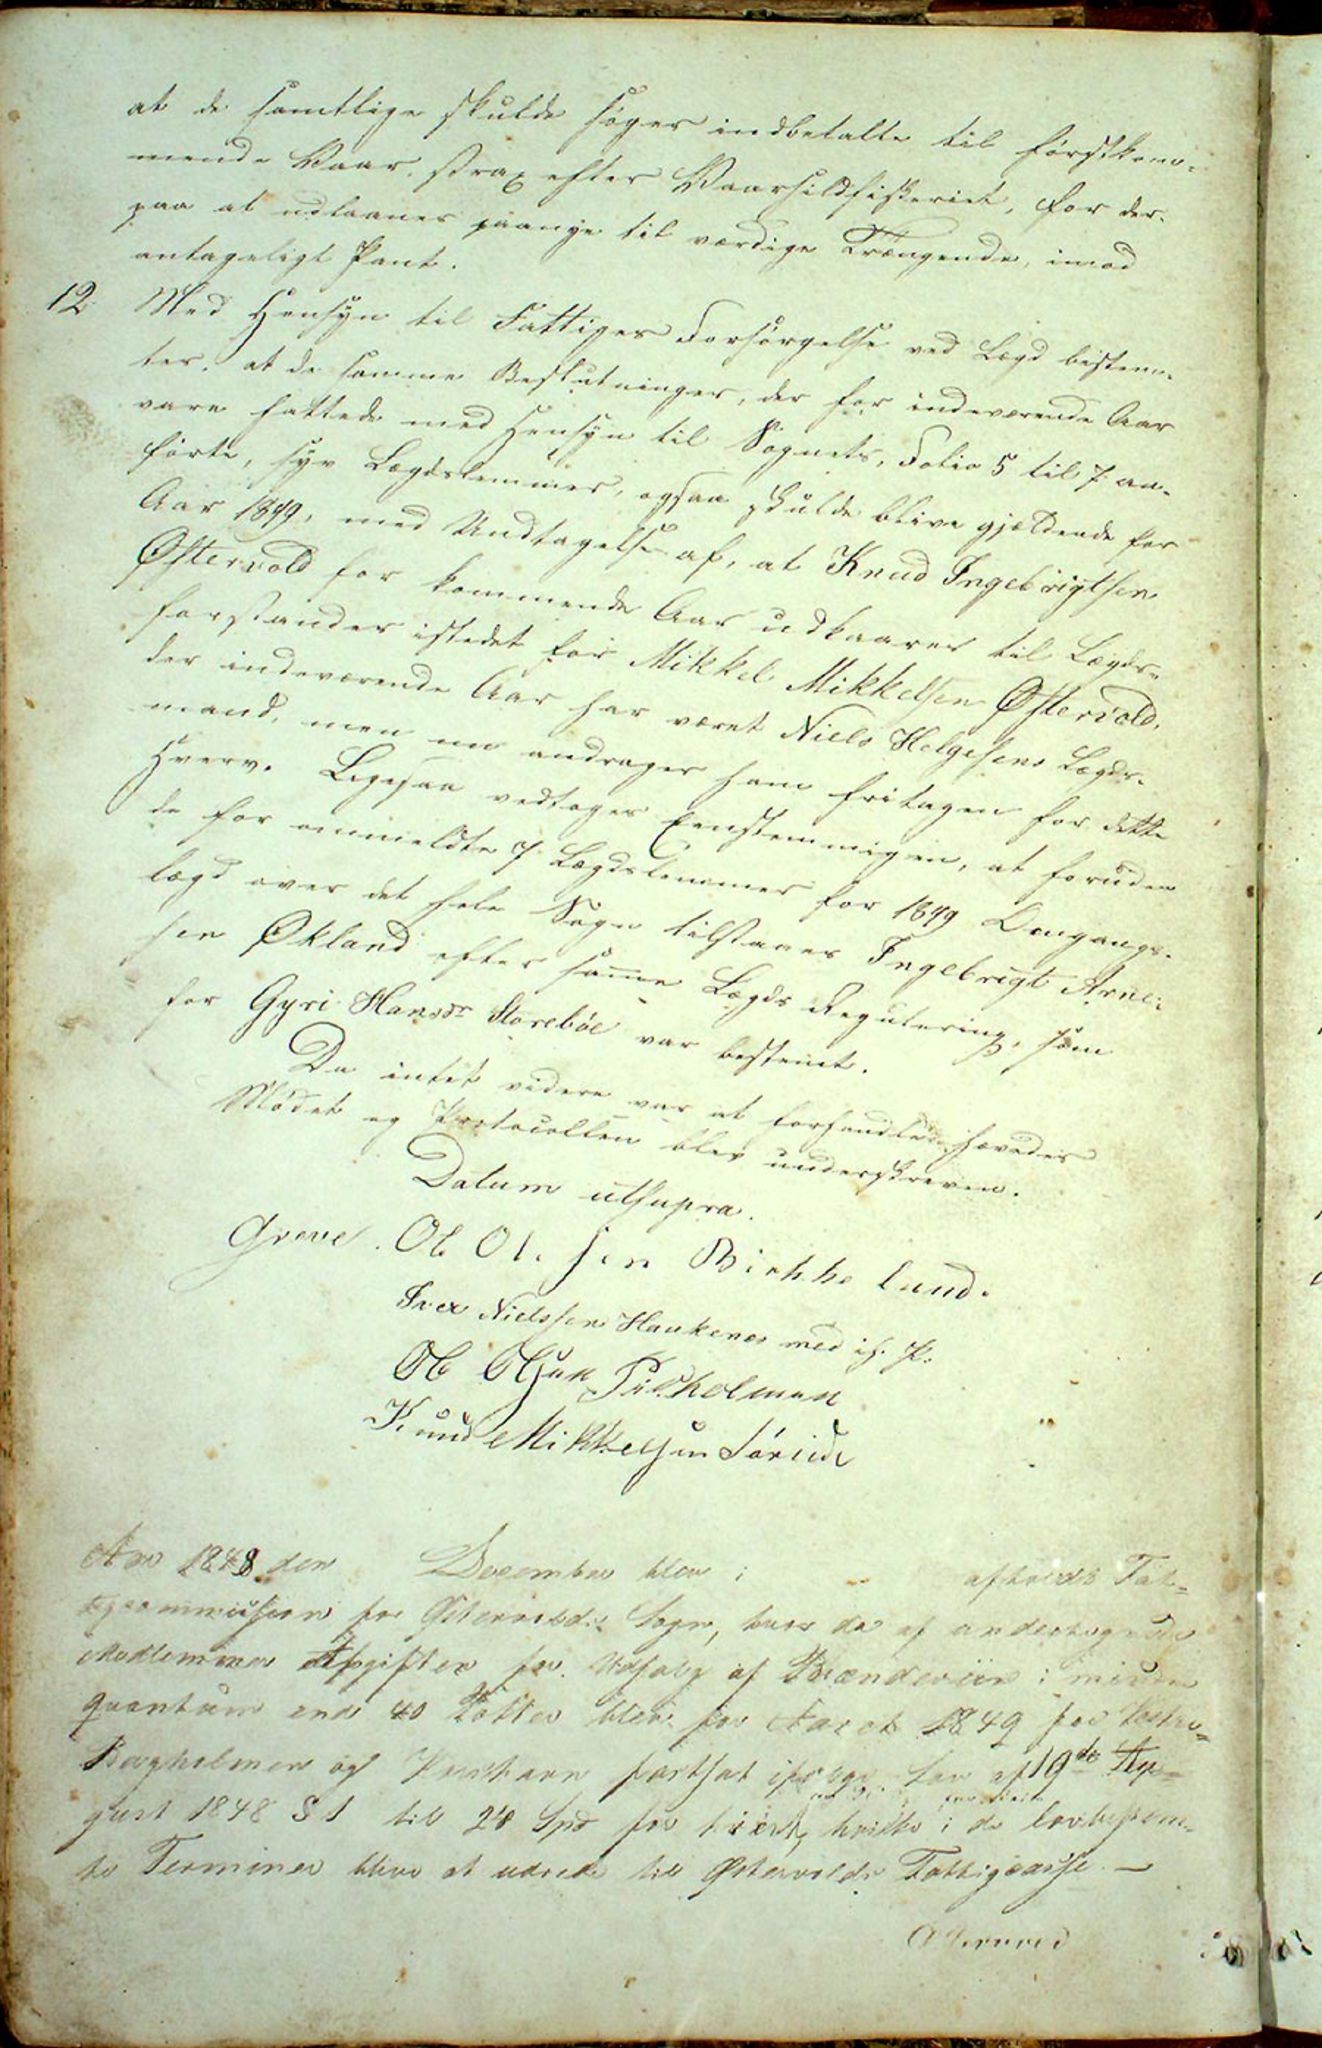 at de samtlige skulde søges indbetalte til førstkom-
mende Vaar, strax efter Vaarsildfiskeriet, for der-
paa at udlaanes paanye til værdige Trængende, imod
antageligt Pant.
12 Med Hensyn til Fattiges Forsørgelse ved Lægd bestem-
tes, at de samme Beslutninger, der for indeværende Aar
vare fattede med Hensyn til Sognets, Folio 5 til 7 an-
førte, syv Lægdslemmer, ogsaa skulde blive gjældende for
Aar 1849, med Undtagelse af, at Knud Ingebrigtsen
Østervold for kommende Aar udkaares til Lægds-
forstander istedet for Mikkel Mikkelsen Østervold,
der indeværende Aar har været Niels Helgesens Lægds-
mand, men nu andrages ham fritagen for dette
Hverv. Ligesaa vedtoges Eenstemmigen, at foruden
de for ommeldte 7 Lægdslemmer for 1849 Omgangs-
lægd over det hele Sogn tilstaaes Ingebrigt Arne-
sen Økland efter samme Lægds Regulering, som
for Gyri Hansdr Storebøe var bestemt.
Da intet videre var at forhandle hævedes
Mødet og Protocollen blev underskreven.
Datum utsupra.
Greve. Ole Olsen Birkeland.
Iver Nielssen Haukenes med ih. P.
Ole Olsen Kirkholmen
Knud Mikkelsen Søriid
Aar 1848 den December blev i afholdt Fat-
tigcommission for Østervolds Sogn, hvor da af undertegnede
Medlemmer Afgiften for Udsalg af Brændeviin i mindre
Quantum end 40 Potter blev for Aaret 1849 for
Bergholmen og fastsat ifølge Lov af 19de Au-
gust 1848 § 1 til 24 Spd for hvert, hvilke i de lovbestem-
te Terminer blive at udrede til Østervolds Fattigcasse. —